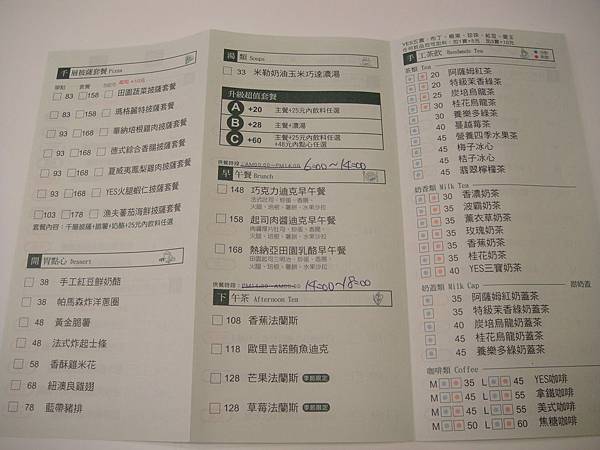 手 層披薩套餐 Pizza
單點 套餐
83 158 田園蔬菜披薩套餐
83 158 瑪格麗特披薩套餐
93 168 華納培根雞肉披薩套餐
93 168 德式綜合香腸披薩套餐
93 168 夏威夷鳳梨雞肉披薩套餐
93 168 YES火腿蝦仁披薩套餐
103 178 漁夫蕃茄海鮮披薩套餐
開 胃點心 Dessert
38 手工紅豆鮮奶酪
38 帕馬森炸洋蔥圈
48 黃金脆薯
48 法式炸起士條
58 香酥雞米花
68 紐澳良雞翅
78 藍帶豬排
湯 類 Soups
33 米勒奶油玉米巧達濃湯
升級超值套餐
A +20 主餐+25元內飲料任選
B +28 主餐+濃湯
C +60 主餐+25元內飲料任選
+48元內點心任選
供餐時段: AM09:00~PM14:00 6:00~14:00
早 午餐 Brunch
148 巧克力迪克早午餐
158 起司肉醬迪克早午餐
168 熱納亞田園乳酪早午餐
14:00~18:00
下 午茶 Afternoon Tea
108 香蕉法蘭斯
118 歐里吉諾鮪魚迪克
128 芒果法蘭斯 季節限定
128 草莓法蘭斯 季節限定
手 工茶飲 Handmade Tea
茶類 Tea
20 阿薩姆紅茶
20 特級茉香綠茶
25 炭培烏龍茶
30 桂花烏龍茶
30 養樂多綠茶
40 蔓越莓茶
45 營養四季水果茶
45 梅子冰心
45 桔子冰心
45 翡翠檸檬茶
奶香類 Milk Tea
30 香濃奶茶
35 波霸奶茶
35 薰衣草奶茶
35 玫瑰奶茶
35 香蕉奶茶
35 桂花奶茶
40 YES三寶奶茶
奶蓋類 Milk Cap
35 阿薩姆紅奶蓋茶
35 特級茉香綠奶蓋茶
40 炭培烏龍奶蓋茶
45 桂花烏龍奶蓋茶
45 養樂多綠奶蓋茶
咖啡類 Coffee
M 35 L 45 YES咖啡
M 45 L 55 拿鐵咖啡
M 45 L 55 美式咖啡
M 50 L 60 焦糖咖啡